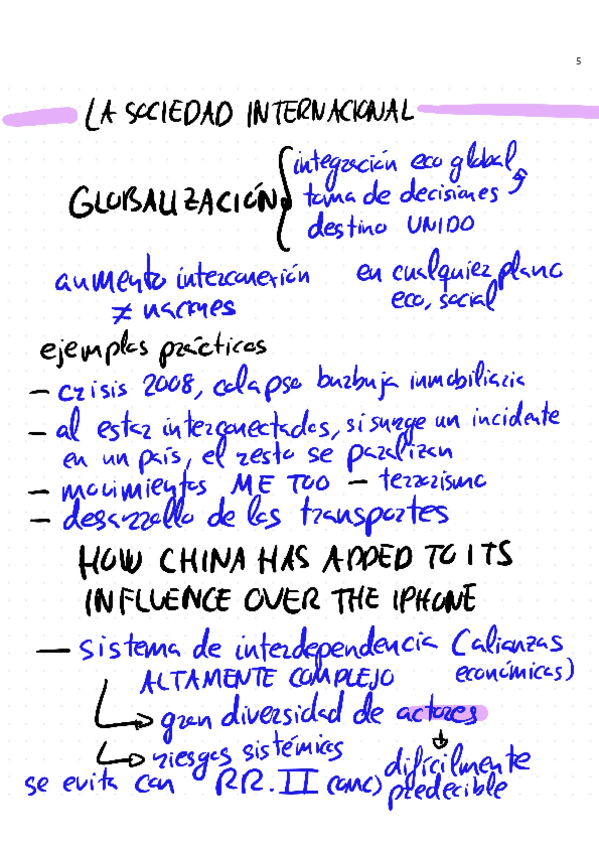 5
LA SOCIEDAD INTERNACIONAL
GLOBALIZACIÓN
integración eco global
toma de decisiones
destino UNIDO
aumento interconexión
≠ naciones
en cualquier plano
eco, social
ejemplos prácticos
- crisis 2008, colapso burbuja inmobiliaria
- al estar interconectados, si surge un incidente
en un país, el resto se paralizan
- movimientos ME TOO - terrorismo
- desarrollo de los transportes
HOW CHINA HAS ADDED TO ITS
INFLUENCE OVER THE IPHONE
- sistema de interdependencia (alianzas
económicas)
ALTAMENTE COMPLEJO
gran diversidad de actores
riesgos sistémicos
difícilmente
predecible
se evita con RR.II